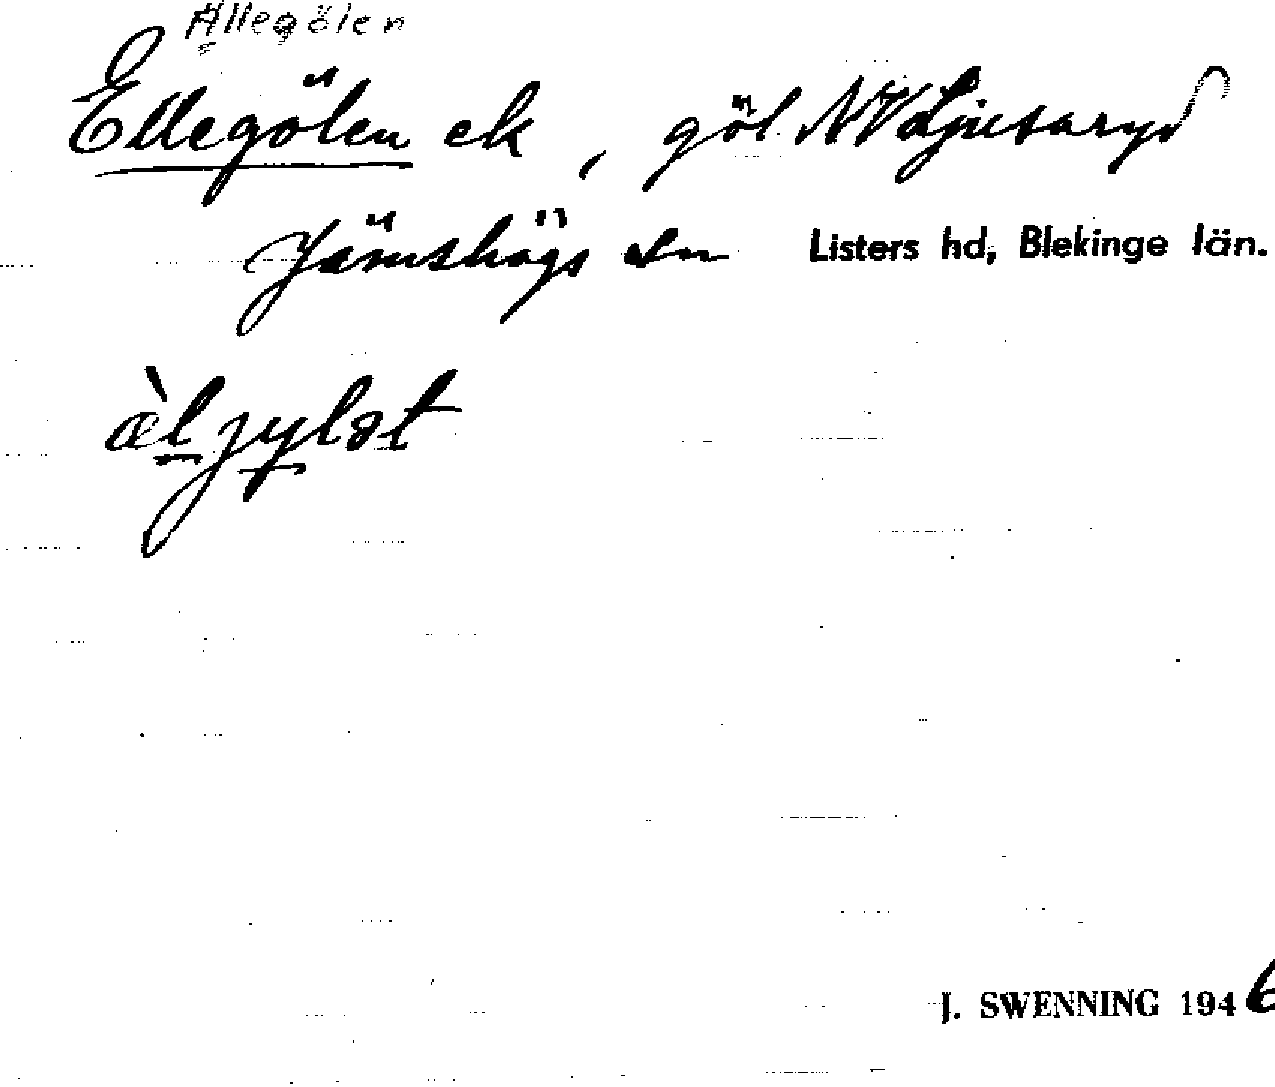 Ällegölen
Ellegölen ek, göl NV Ljusaryd
Jämshögs sn Listers hd, Blekinge län.
æ̀l jylət
J. SWENNING 1946